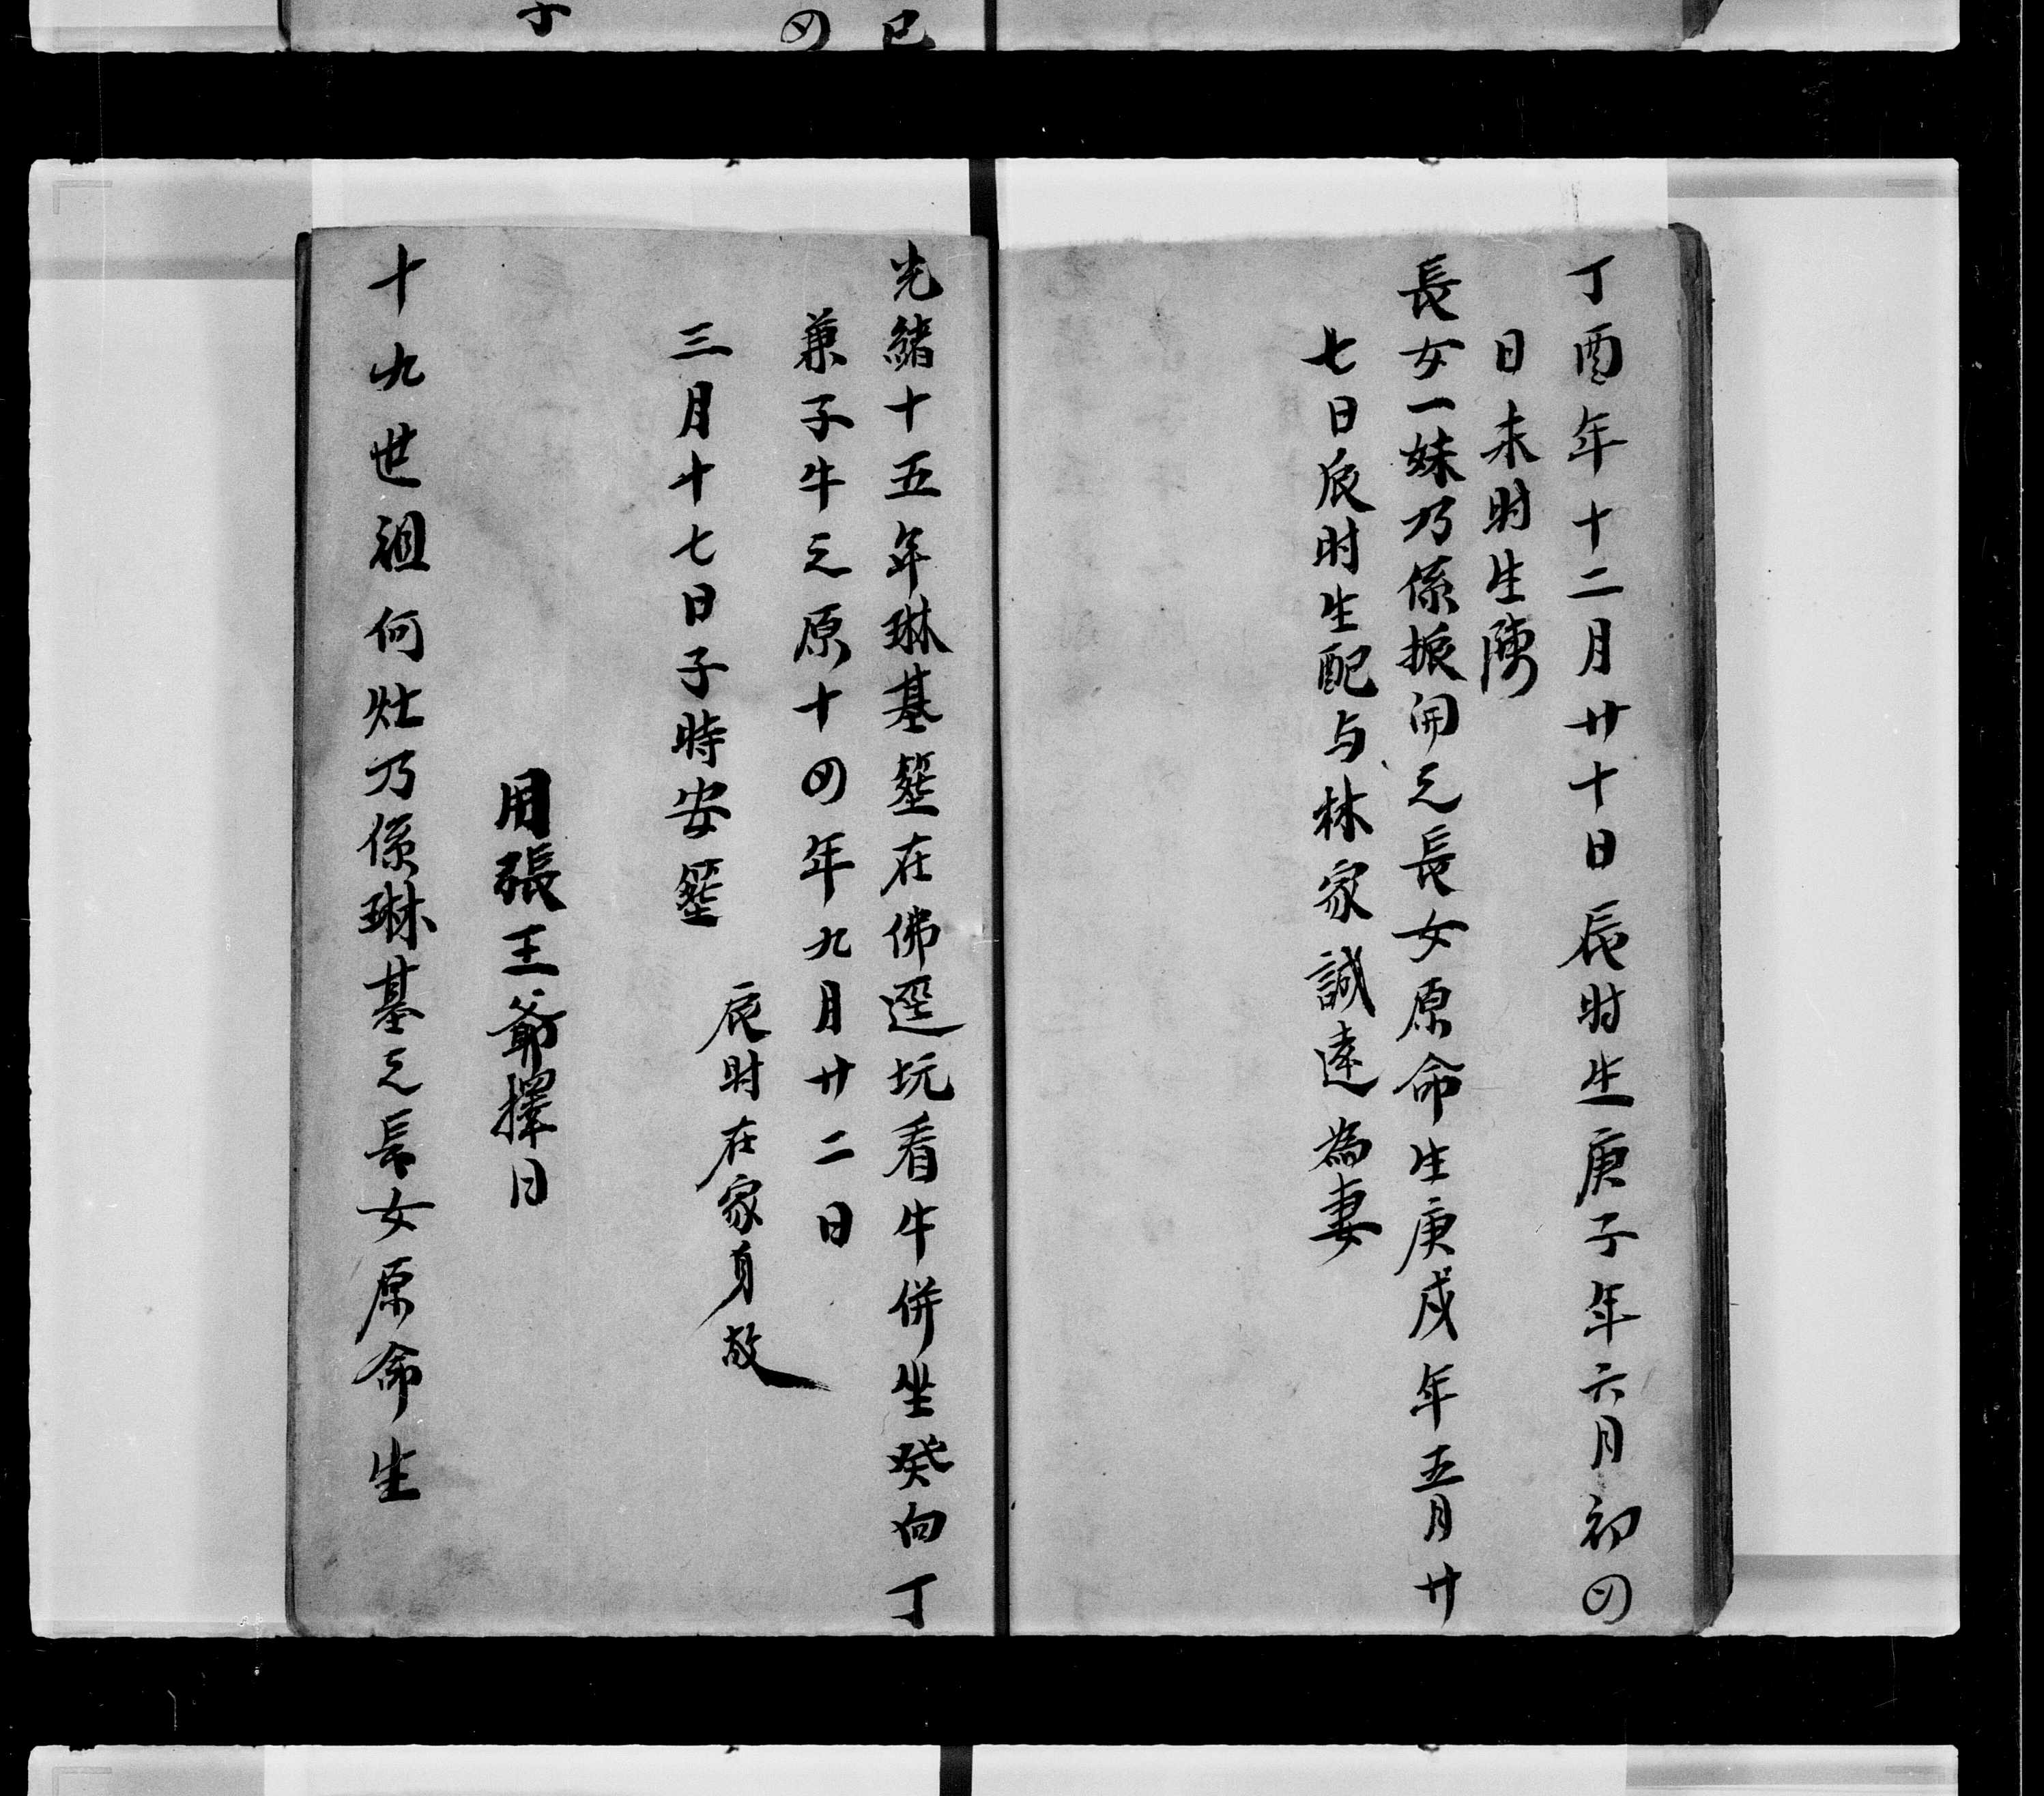 丁酉年十二月廿十日辰时生庚子年六月初四
日未时生
長女一妹乃係振開之長女原命生庚戌年五月廿
七日辰时生配与林家誠遠為妻
光緒十五年琳基塟在佛逕坑看牛併坐癸向丁
兼子牛之原十四年九月廿二日
辰时在家身故
三月十七日子時安塟
用張王爺擇日
十九世祖何灶乃係琳基之長女原命生